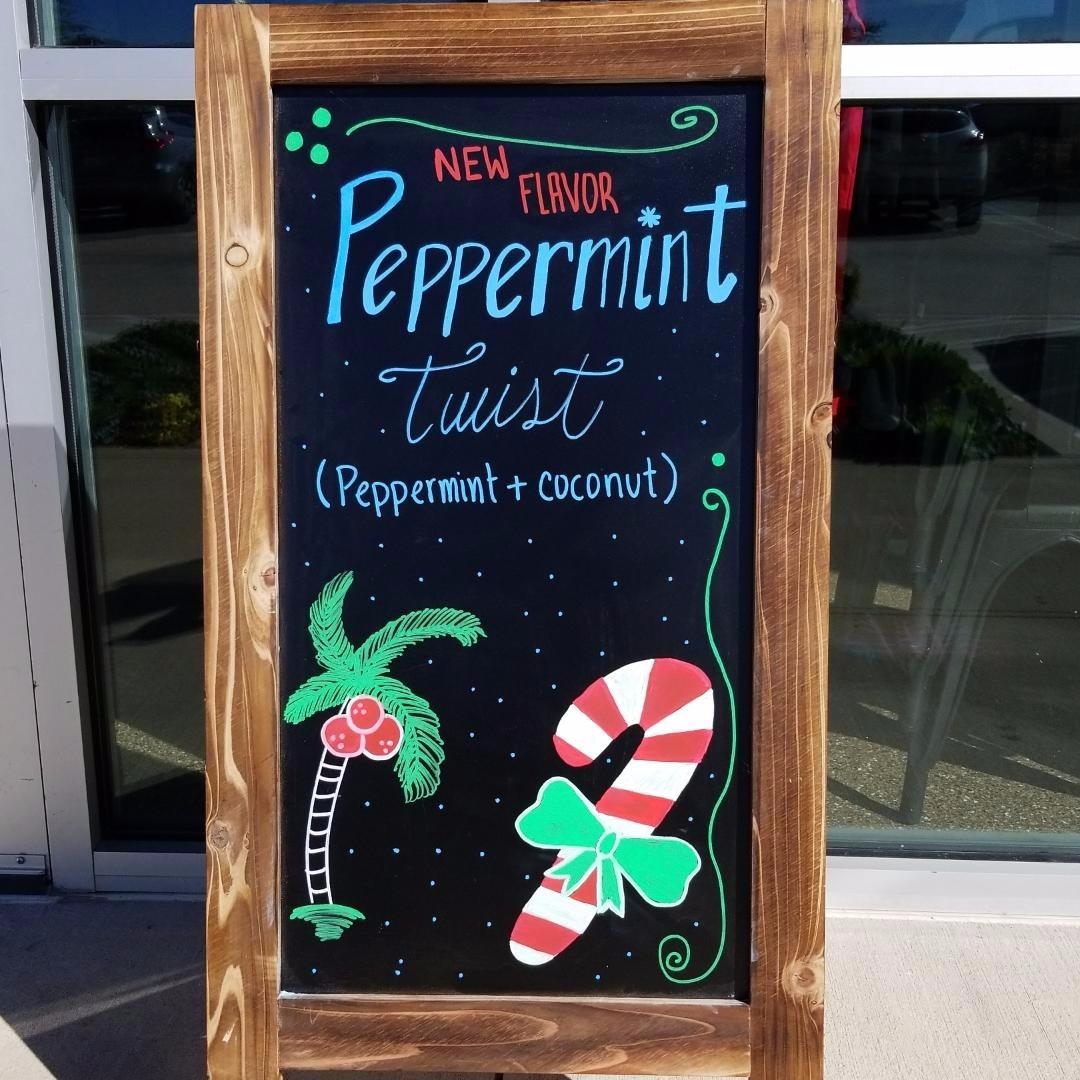 NEW
FLAVOR
Peppermint
Twist
(Peppermint + coconut)